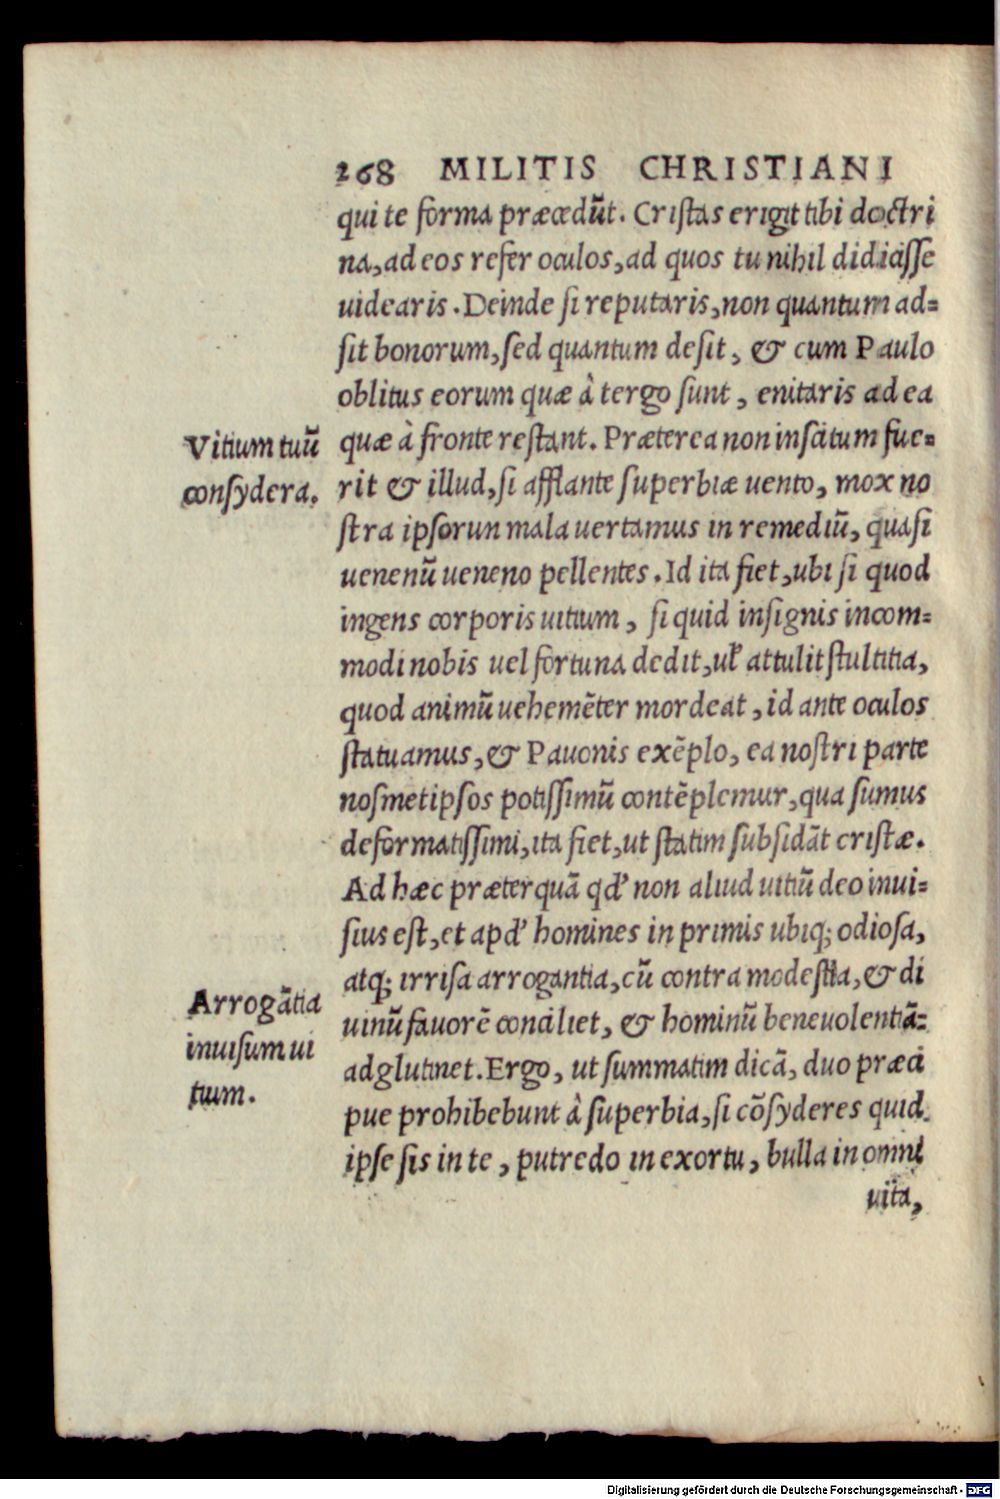 268 MILITIS CHRISTIANI
qui te forma præcedũt. Cristas erigit tibi doctri
na, ad eos refer oculos, ad quos tu nihil didicisse
uidearis. Deinde si reputaris, non quantum ad=
sit bonorum, sed quantum desit, & cum Paulo
oblitus eorum quæ à tergo sunt, enitaris ad ea
Vitium tuũ
consydera.
quæ à fronte restant. Præterea non inscitum fue=
rit & illud, si afflante superbiæ uento, mox no
stra ipsorun mala uertamus in remediũ, quasi
uenenũ ueneno pellentes. Id ita fiet, ubi si quod
ingens corporis uitium, si quid insignis incom=
modi nobis uel fortuna dedit, uł attulit stultitia,
quod animũ uehemẽter mordeat, id ante oculos
statuamus, & Pauonis exẽplo, ea nostri parte
nosmetipsos potissimũ contẽplemur, qua sumus
deformatissimi, ita fiet, ut statim subsidãt cristæ.
Ad hæc præterquã qd' non aliud uitiũ deo inui=
sius est, et apd' homines in primis ubiq; odiosa,
atq; irrisa arrogantia, cũ contra modestia, & di
Arrogãtia
inuisum ui
tium.
uinũ fauorẽ conciliet, & hominũ beneuolentiã=
adglutinet. Ergo, ut summatim dicã, duo præci
pue prohibebunt à superbia, si cõsyderes quid
ipse sis in te, putredo in exortu, bulla in omni
uita,
Digitalisierung gefördert durch die Deutsche Forschungsgemeinschaft - DFG